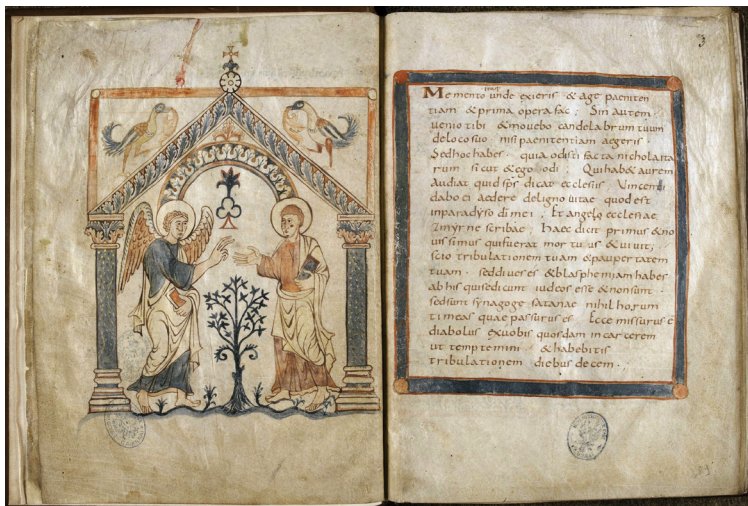 3
Memento itaq; unde exieris & age paeniten
tiam & prima opera fac; Sin autem
uenio tibi & mouebo candelabrum tuum
deloco suo nisi paenitentiam aegeris
Sedhoc habes quia odisti facta nicholaita
rum sicut & ego odi Qui hab& aurem
Audiat quid sps dicat ecclesiis Vincenti
dabo ei aedere deligno uitae quod est
inparadyso di mei . Et angelo ecclesiae
Zmyrne scribae ; haec dicit primus & no
uissimus qui fuerat mortuus & uiuit,
scio tribulationem tuam & paupertatem
tuam . sed diues es & blasphemiam habes
ab his qui sedicunt iudeos esse & nonsunt
sedsunt synagoge satanae nihil horum
timeas quae passurus es Ecce missurus ē
diabolus exuobis quosdam in carcerem
ut temptemini & habebitis
tribulationem diebus decem .